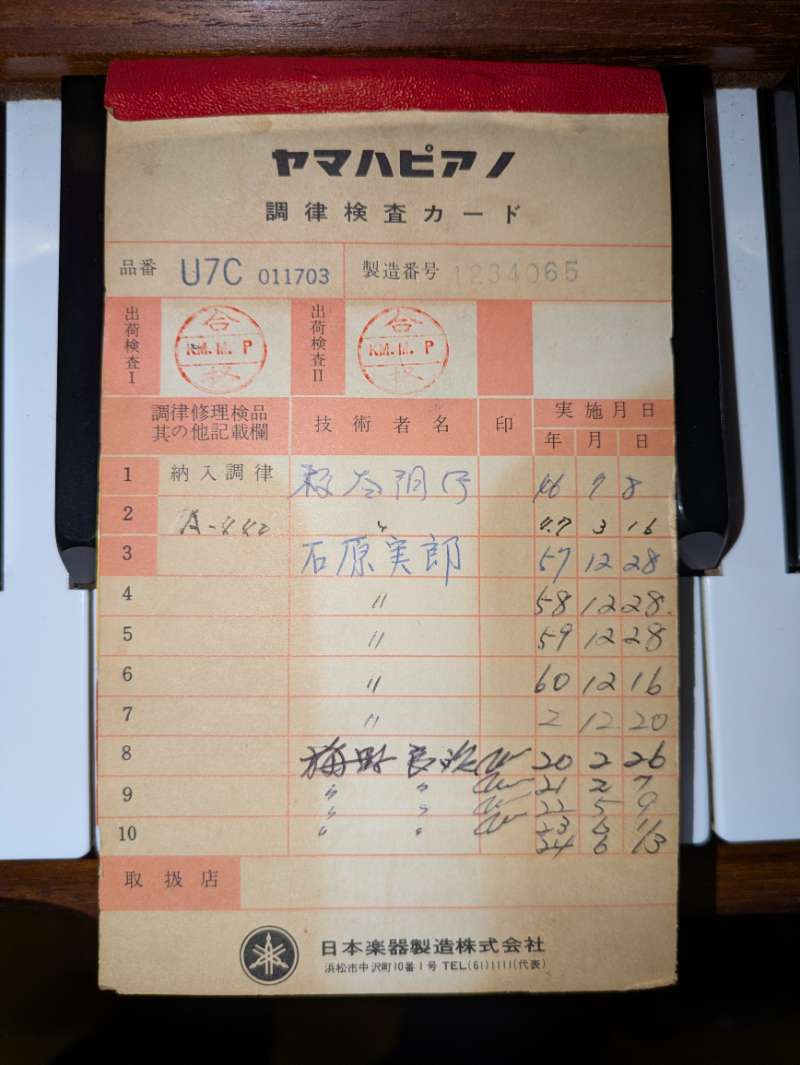 ヤマハピアノ
調律検査カード
品番 U7C 011703 製造番号 1234065
出荷検査I 合 KM. M. P 格 出荷検査II 合 KM. M. P 格
調律修理検品 其の他記載欄 技術者名 印 実施月日
年 月 日
1 納入調律 46 7 8
2 A-442 〃 47 3 16
3 石原実郎 57 12 28
4 〃 58 12 28
5 〃 59 12 28
6 〃 60 12 16
7 〃 2 12 20
8 梅野 20 2 26
9 〃 〃 21 2 7
〃 〃 22 5 9
10 〃 〃 23
24 6 13
取扱店
日本楽器製造株式会社
浜松市中沢町10番1号 TEL(61)1111(代表)